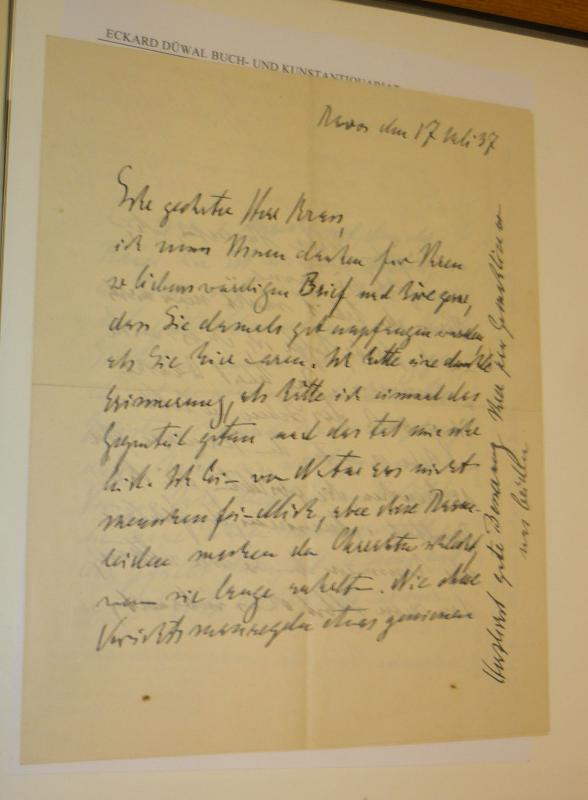 ECKARD DÜWAL BUCH- UND KUNSTANTIQUARIAT
Davos den 17 Juli 37
Sehr geehrter Herr
ich muss Ihnen danken für Ihren
so liebenswürdigen Brief und höre gerne,
dass Sie damals gut empfangen wurden
als Sie hier waren. Ich hatte eine dunkle
Erinnerung, als hätte ich einmal das
Gegenteil getan und das tat mir sehr
leid. Ich bin von Natur aus nicht
menschenfeindlich, aber diese
leiden machen den Charakter schlecht,
wenn sie lange anhalten. Nie ohne
Vorsichtsmassregeln etwas geniessen
gute Besserung Ihrer Frau Gemahlin